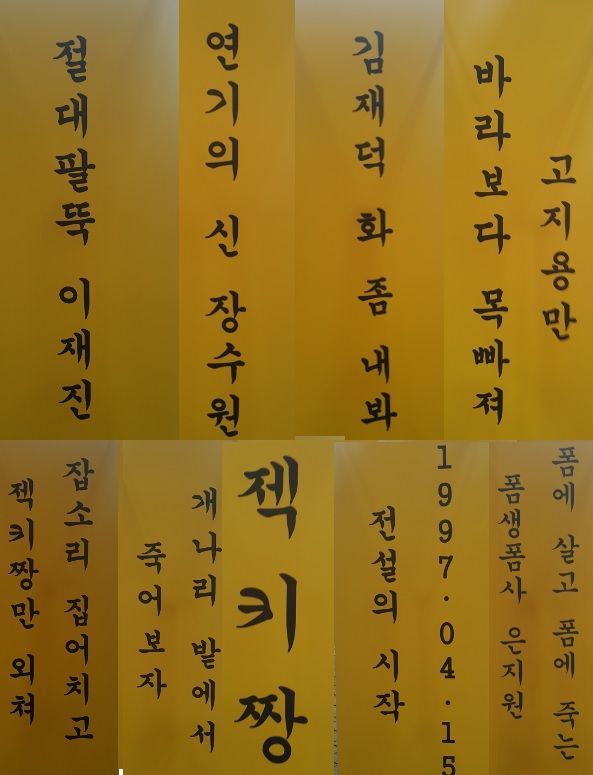 절대팔뚝 이재진
연기의 신 장수원
김재덕 화 좀 내봐
고지용만
바라보다 목빠져
잡소리 집어치고
젝키짱만 외쳐
개나리 밭에서
죽어보자
젝키짱
1997.04.15
전설의 시작
폼에 살고 폼에 죽는
폼생폼사 은지원